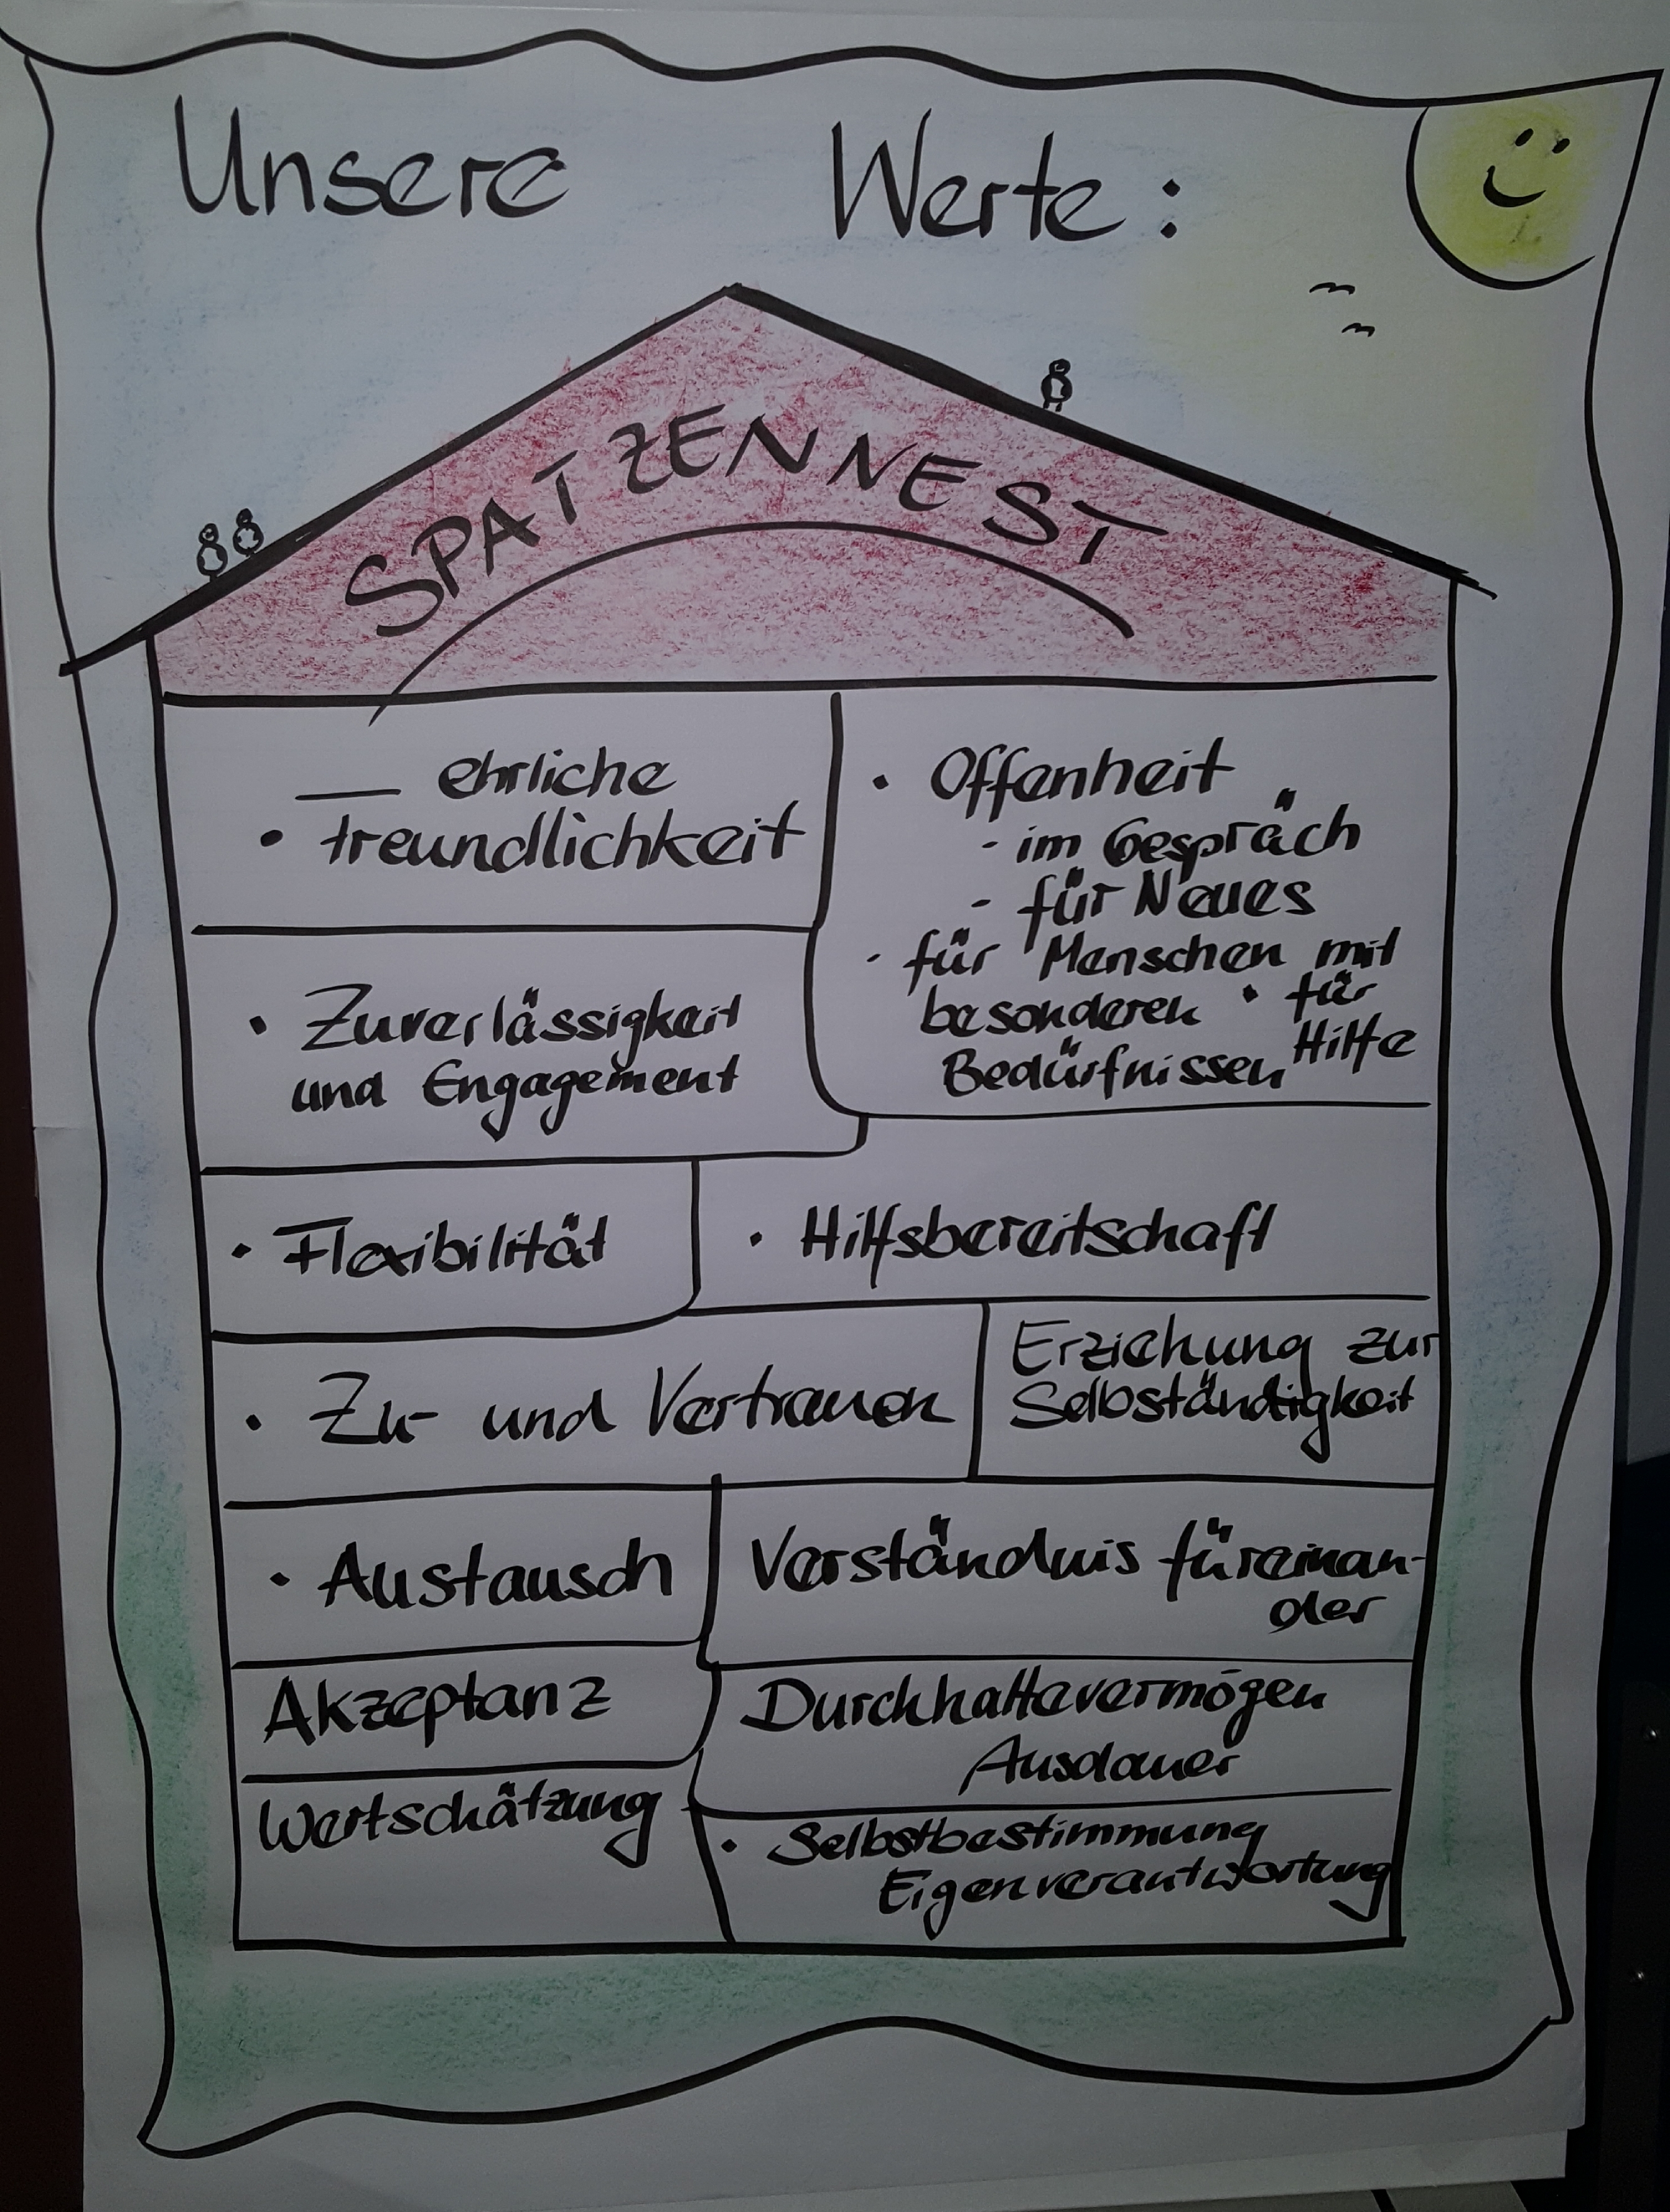 Unsere Werte:
SPATZENNEST
ehrliche
• Freundlichkeit
• Offenheit
- im Gespräch
- für Neues
- für Menschen mit
besonderen • für
Bedürfnissen Hilfe
• Zuverlässigkeit
und Engagement
• Flexibilität
• Hilfsbereitschaft
• Zu- und Vertrauen
Erziehung zur
Selbständigkeit
• Austausch
Verständnis füreinan-
der
Akzeptanz
Durchhaltevermögen
Ausdauer
Wertschätzung
• Selbstbestimmung
Eigenverantwortung